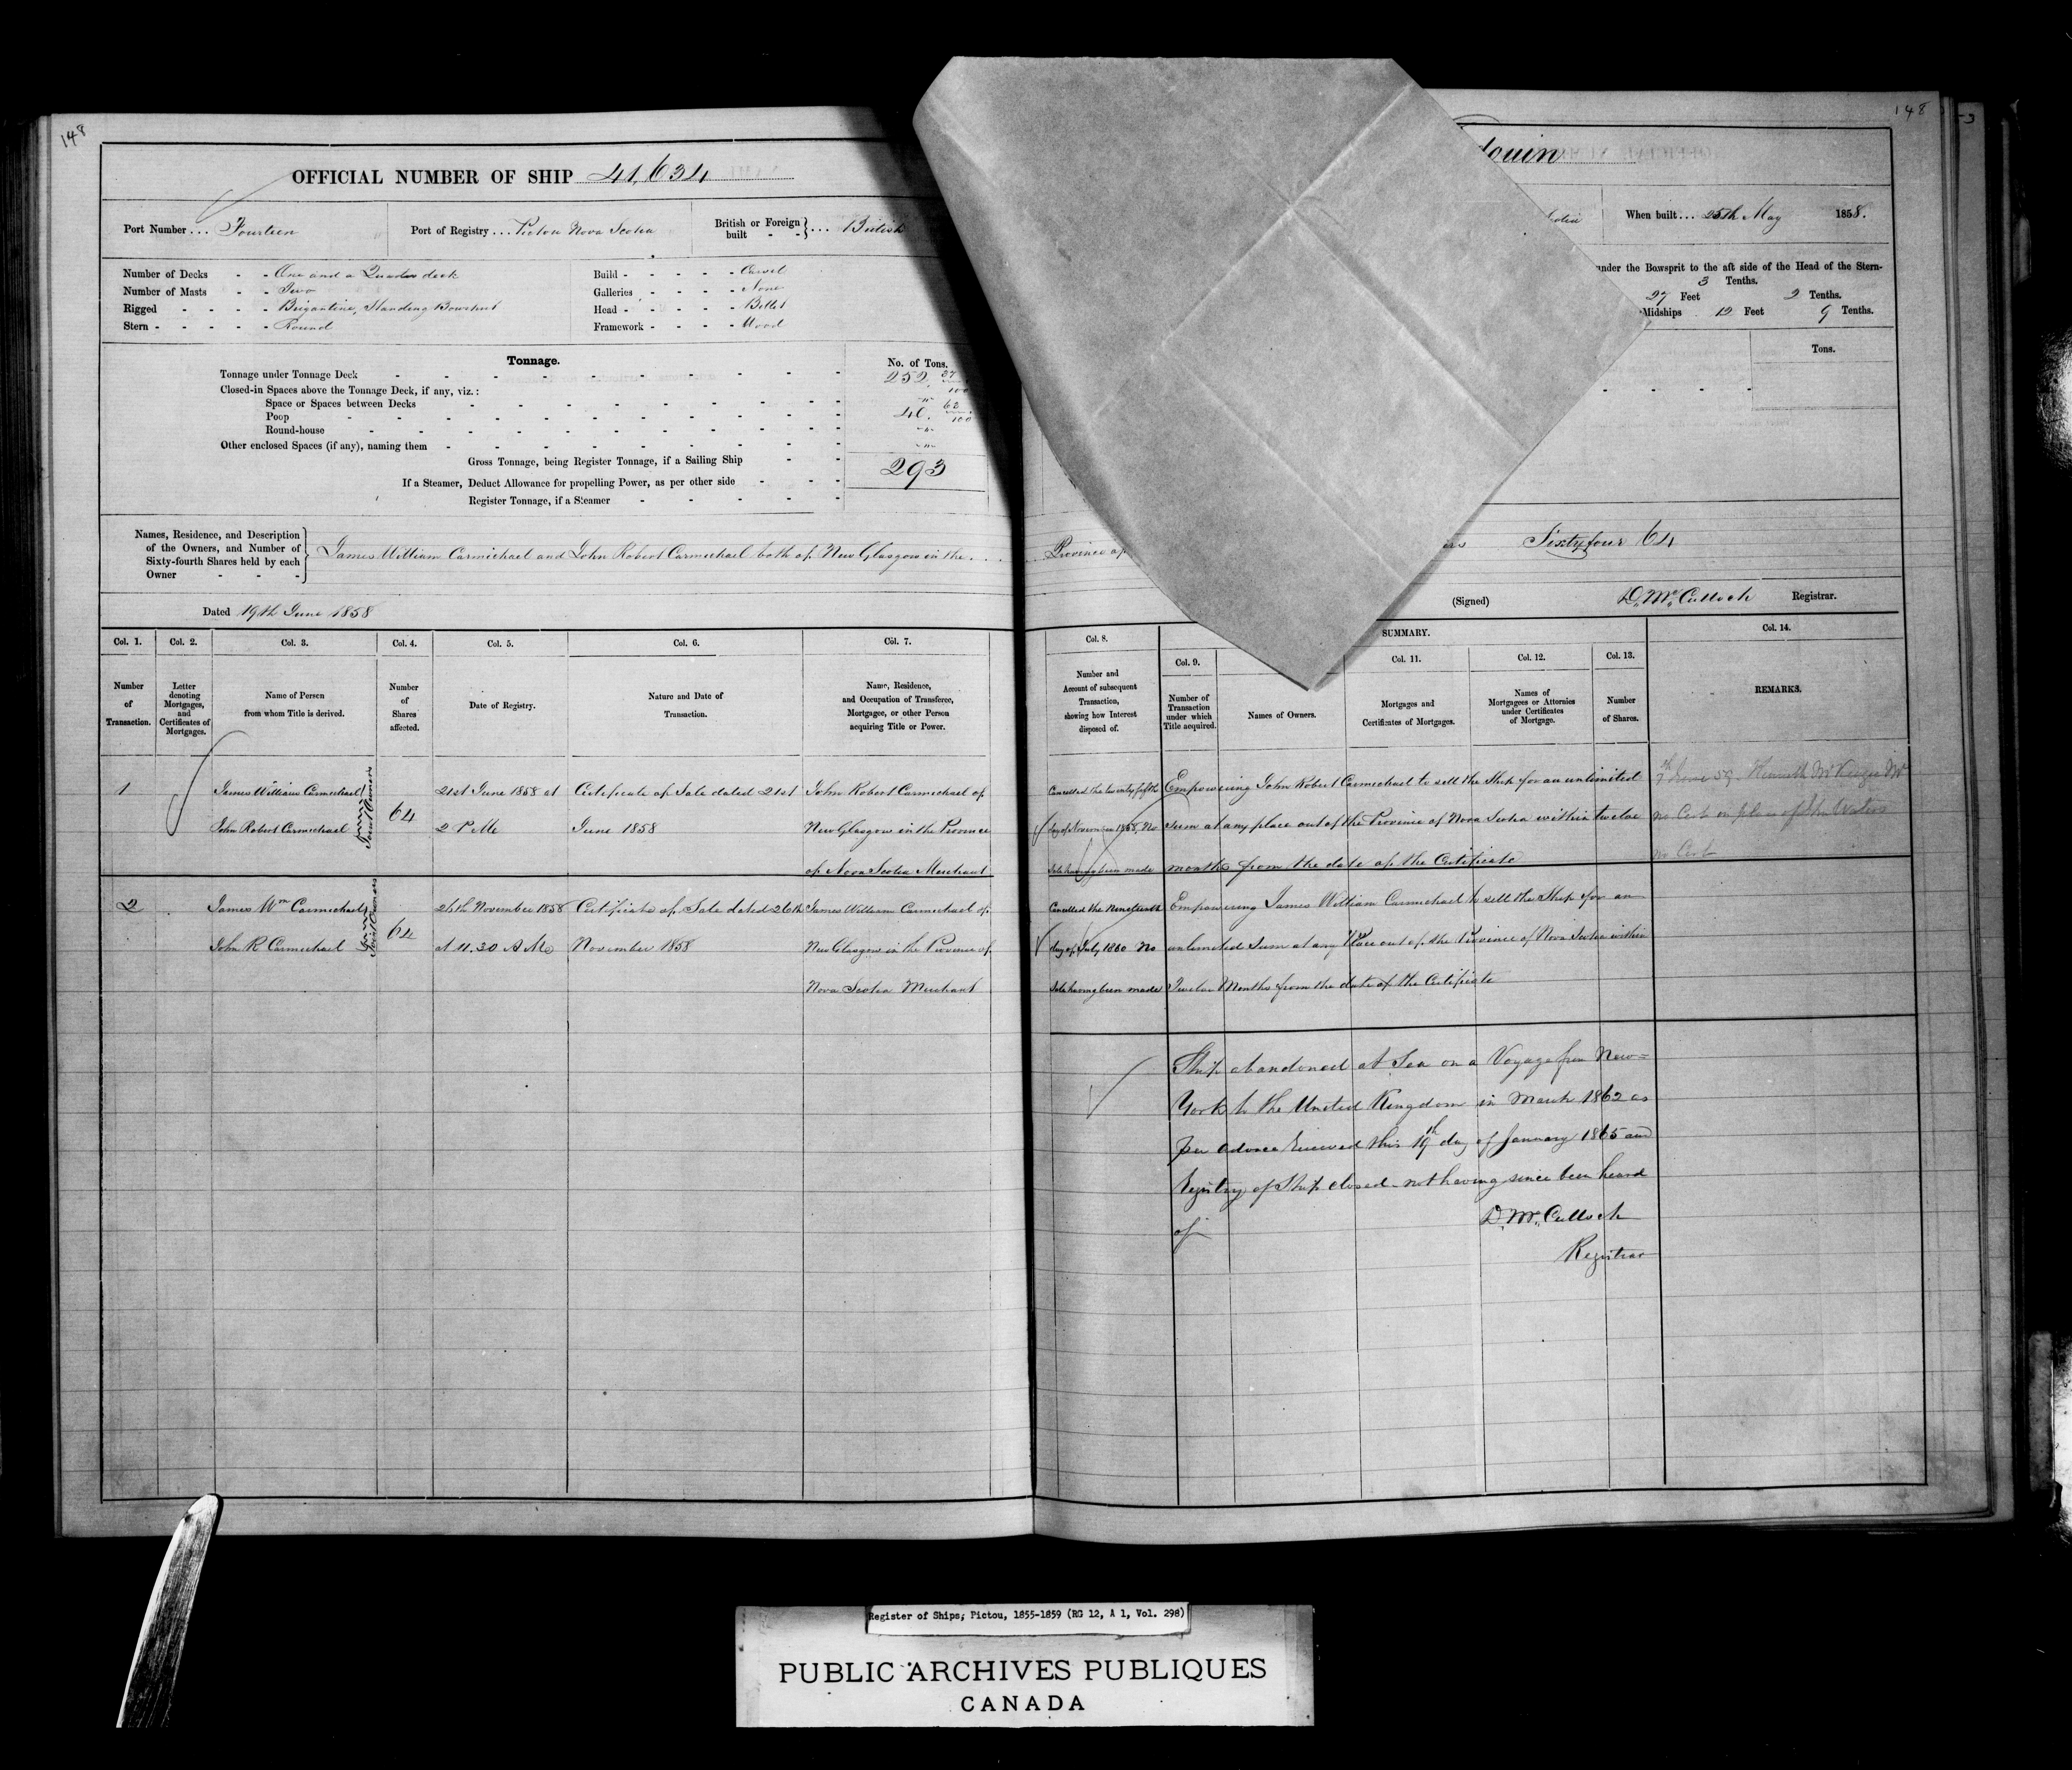 148
148
OFFICIAL NUMBER OF SHIP 41,634
douin
Port Number ... Fourteen
Port of Registry ... Pictou Nova Scotia
British or Foreign built - - } ... British
Scotia
When built ... 25th May 1858.
Number of Decks - - One and a Quarter deck
Number of Masts - - Two
Rigged - - - - Brigantine, Standing Bowsprit
Stern - - - - - Round
Build - - - - - Carvel
Galleries - - - - None
Head - - - - - Billet
Framework - - - - Wood
under the Bowsprit to the aft side of the Head of the Stern-
3 Tenths.
27 Feet 2 Tenths.
Midships 12 Feet 9 Tenths.
Tonnage.
No. of Tons.
Tonnage under Tonnage Deck 252. 27/100
Closed-in Spaces above the Tonnage Deck, if any, viz.:
Space or Spaces between Decks - " -
Poop 40. 62/100
Round-house - " -
Other enclosed Spaces (if any), naming them - " -
Gross Tonnage, being Register Tonnage, if a Sailing Ship 293
If a Steamer, Deduct Allowance for propelling Power, as per other side
Register Tonnage, if a Steamer
Tons.
Names, Residence, and Description of the Owners, and Number of Sixty-fourth Shares held by each Owner - - -
James William Carmichael and John Robert Carmichael both of New Glasgow in the . . . . Province of
ers Sixty four 64
Dated 19th June 1858
(Signed) D. McCulloch Registrar.
Col. 1. Col. 2. Col. 3. Col. 4. Col. 5. Col. 6. Col. 7.
Number of Transaction.
Letter denoting Mortgages, and Certificates of Mortgages.
Name of Person from whom Title is derived.
Number of Shares affected.
Date of Registry.
Nature and Date of Transaction.
Name, Residence, and Occupation of Transferee, Mortgagee, or other Person acquiring Title or Power.
Col. 8.
Number and Account of subsequent Transaction, showing how Interest disposed of.
SUMMARY.
Col. 9.
Col. 11. Col. 12. Col. 13. Col. 14.
Number of Transaction under which Title acquired.
Names of Owners.
Mortgages and Certificates of Mortgages.
Names of Mortgagees or Attornies under Certificates of Mortgage.
Number of Shares.
REMARKS.
1
James William Carmichael
John Robert Carmichael
Joint Owners
64
21st June 1858 at
2 P M
Certificate of Sale dated 21st
June 1858
John Robert Carmichael of
New Glasgow in the Province
of Nova Scotia Merchant
Cancelled the twenty fifth
day of November 1858, No
Sale having been made
Empowering John Robert Carmichael to sell the Ship for an unlimited
Sum at any place out of the Province of Nova Scotia within twelve
months from the date of the Certificate
7th June 59 Kenneth McKenzie
no Cert in place of John Waters
no Cert
2
James Wm Carmichael
John R Carmichael
Joint Owners
64
26th November 1858
at 11.30 A M
Certificate of Sale dated 26th
November 1858
James William Carmichael of
New Glasgow in the Province of
Nova Scotia Merchant
Cancelled the Nineteenth
day of July 1860 No
Sale having been made
Empowering James William Carmichael to sell the Ship for an
unlimited Sum at any Place out of the Province of Nova Scotia within
Twelve Months from the date of the Certificate
Ship abandoned at Sea on a Voyage from New=
York to the United Kingdom in March 1862 as
per advice received this 19th day of January 1865 and
Registry of Ship closed - not having since been heard
of
D. McCulloch
Registrar
Register of Ships; Pictou, 1855-1859 (RG 12, A 1, Vol. 298)
PUBLIC ARCHIVES PUBLIQUES
CANADA